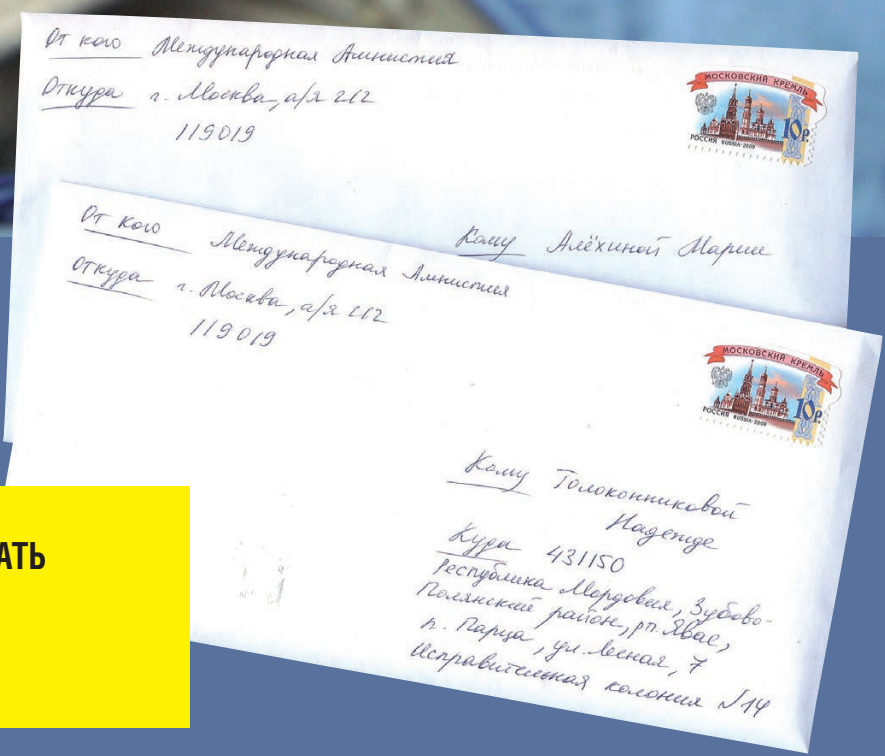 От кого Международная Амнистия
Откуда г. Москва, а/я 212
119019
МОСКОВСКИЙ КРЕМЛЬ
10р.
РОССИЯ RUSSIA · 2009
Кому Алёхиной Марии
От кого Международная Амнистия
Откуда г. Москва, а/я 212
119019
МОСКОВСКИЙ КРЕМЛЬ
10р.
РОССИЯ RUSSIA · 2009
Кому Толоконниковой
Надежде
Куда 431150
Республика Мордовия, Зубово-
Полянский район, рп. Явас,
п. Парца, ул. Лесная, 7
Исправительная колония №14
АТЬ